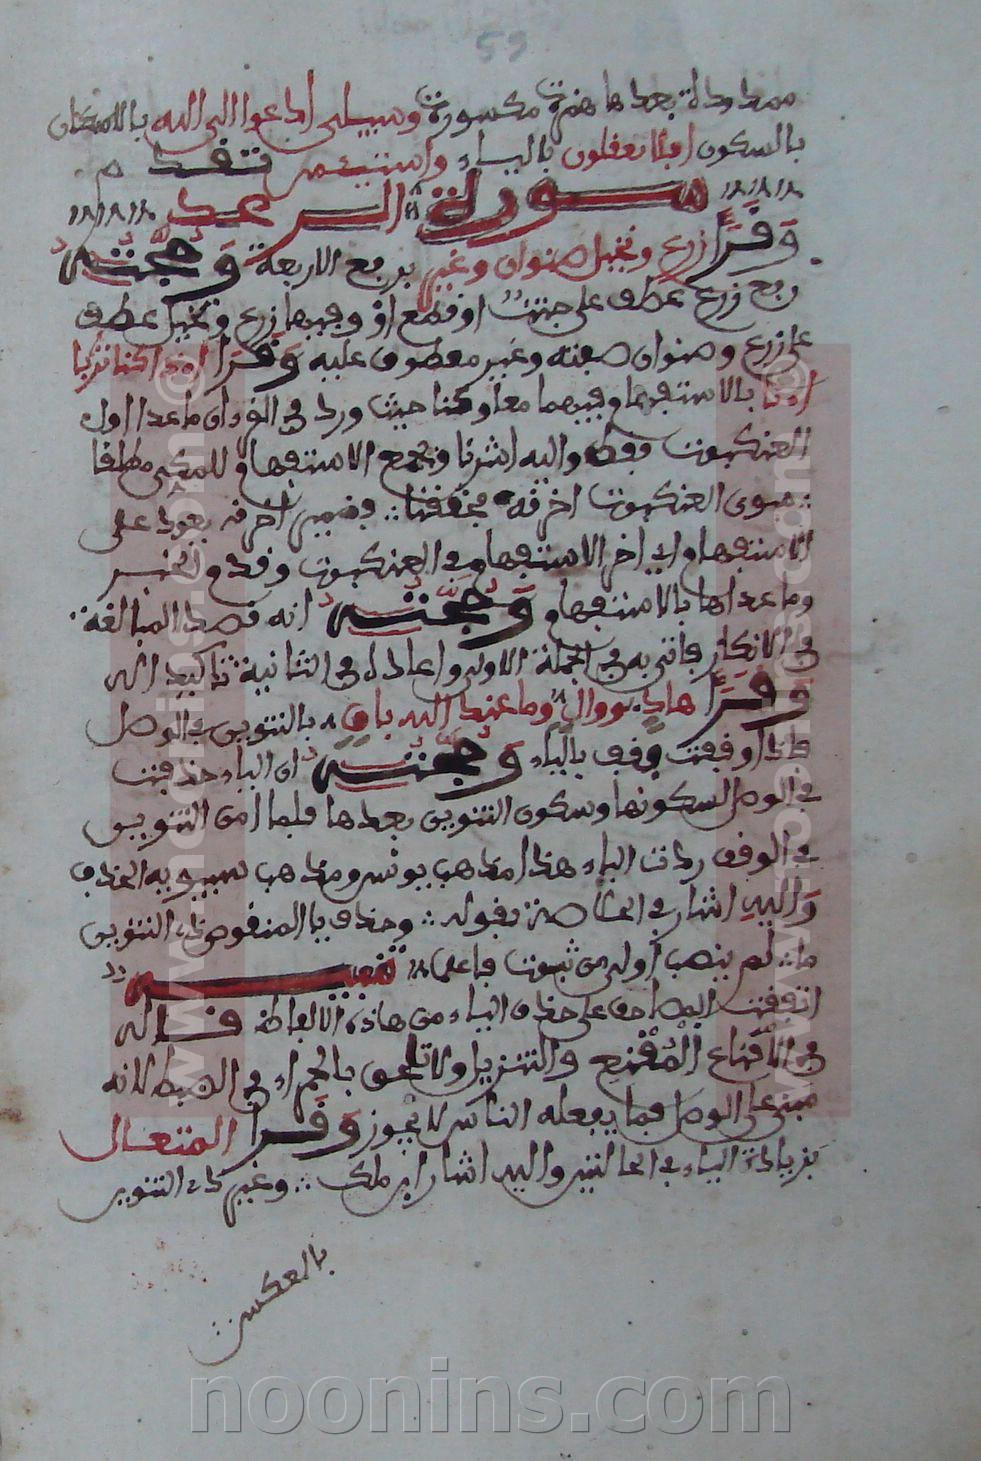 59
ممدودة بعدها همزة مكسورة وسبيلي ادعوا الى الله بالاسكان
بالسكون افلا تعقلون بالياء واستيئس تقدم
سورة الرعد
وقرا زرع ونخيل صنوان وغير برفع الاربعة وحجته
رفع زرع عطف على جنت او قطع اذ وفيها زرع ونخيل عطف
على زرع وصنوان صفته وغير معطوف عليه وقرا اءذا كنا ترابا
اءنا بالاستفهام فيهما معا وكذا حيث ورد في القرءان ما عدا اول
العنكبوت فقط واليه اشرنا وجمع الاستفهام للمكي مطلقا
سوى العنكبوت اخرته مخففا فضمير اخرته يعود على
الاستفهام اي اخر الاستفهام في العنكبوت وقدم الخبر
وما عداها بالاستفهام وحجته انه قصد المبالغة
في الانكار فاتى به في الجملة الاولى واعاده في الثانية تاكيدا له
وقرا هاد ووال وما عند الله باق بالتنوين في الوصل
فاذا وقفت وقف بالياء وحجته ان الياء حذفت
في الوصل لسكونها وسكون التنوين بعدها فلما امن التنوين
في الوقف ردت الياء هذا مذهب يونس ومذهب سيبويه الحذف
واليه اشار في الخلاصة بقوله وحذف يا المنقوص ذي التنوين
ما لم ينصب اولى من ثبوت فاعلما تنبيه
اتفقت المصاحف على حذف الياء من هاذه الالفاظ قاله
في الاقناع المقنع والتنزيل ولا تلحق بالحمراء في الضبط لانه
مبني على الوصل فما يفعله الناس لا يجوز وقرا المتعال
بزيادة الياء في الحالتين واليه اشار ابن ملك وغير ذي التنوين
بالعكس
noonins.com
www.noonins.com
www.noonins.com